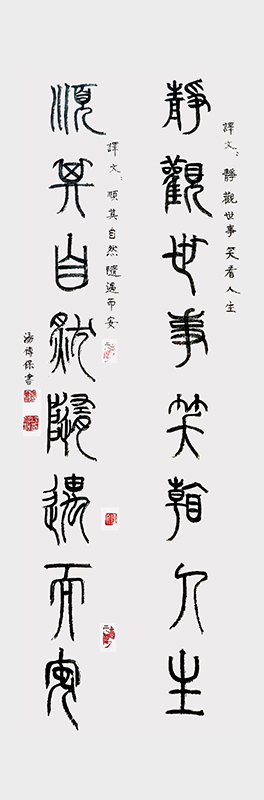 譯文：靜觀世事笑看人生
靜觀世事笑看人生
譯文：順其自然隨遇而安
順其自然隨遇而安
傅保書